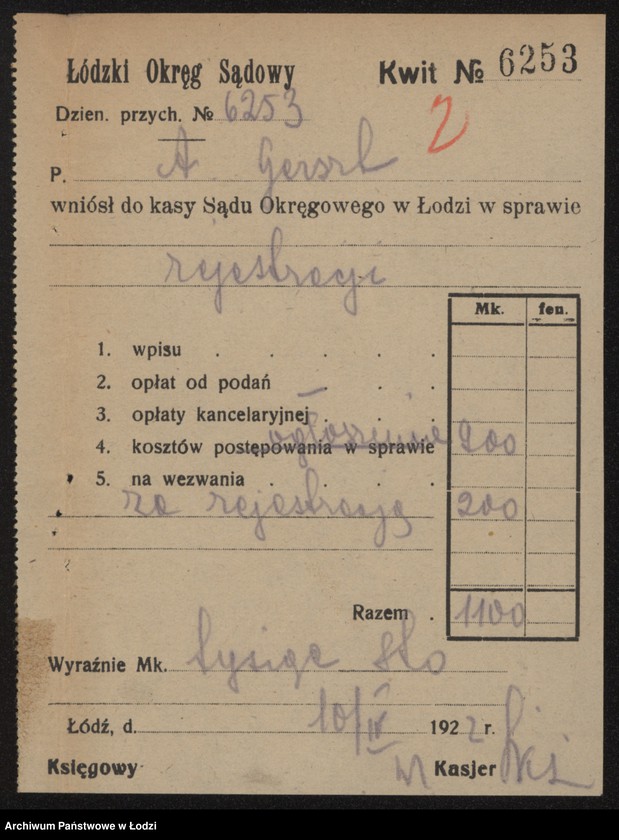 Łódzki Okręg Sądowy
Kwit № 6253
Dzien. przych. № 6253
2
P. A Gerszt
wniósł do kasy Sądu Okręgowego w Łodzi w sprawie
rejestracji
Mk. fen.
1. wpisu . . . . .
2. opłat od podań . . .
3. opłaty kancelaryjnej . . . .
ogłoszenie
4. kosztów postępowania w sprawie 900
5. na wezwania . . . .
za rejestrację 200
Razem . 1100
Wyraźnie Mk. tysiąc sto
Łódź, d. 10/IV 1922 r.
Księgowy Kasjer
Archiwum Państwowe w Łodzi